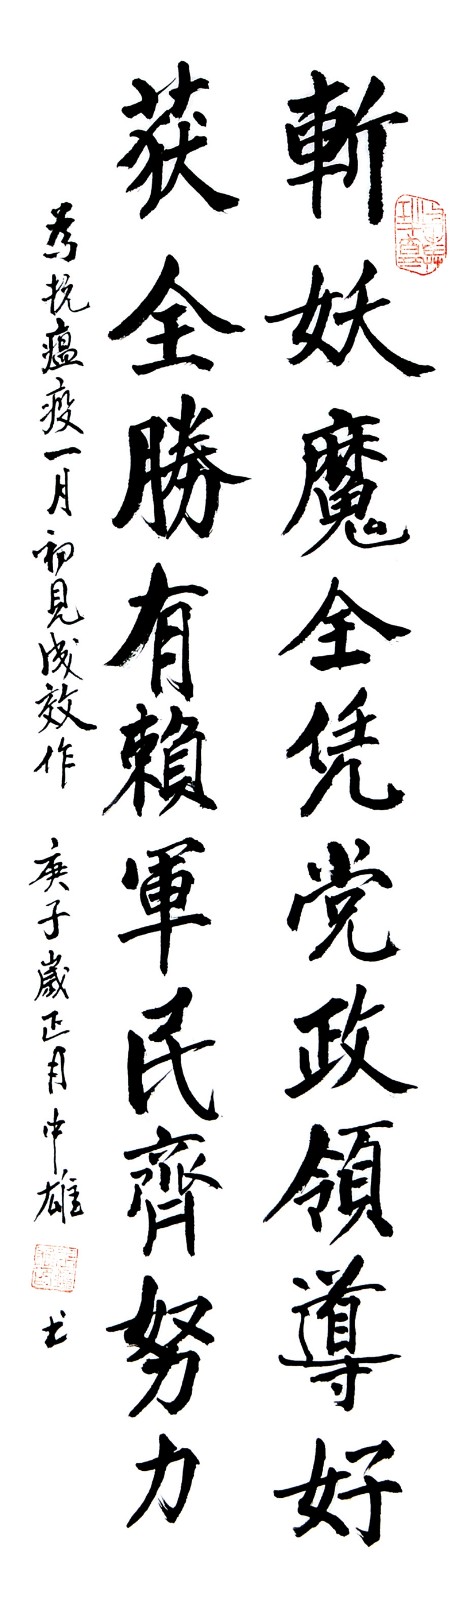 斬妖魔全凭党政領導好
获全勝有賴軍民齊努力
為抗瘟疫一月初見成效作 庚子歲正月中雄书